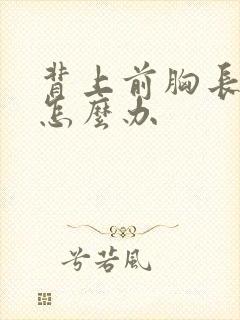 背上前胸長
怎麼办
兮若風